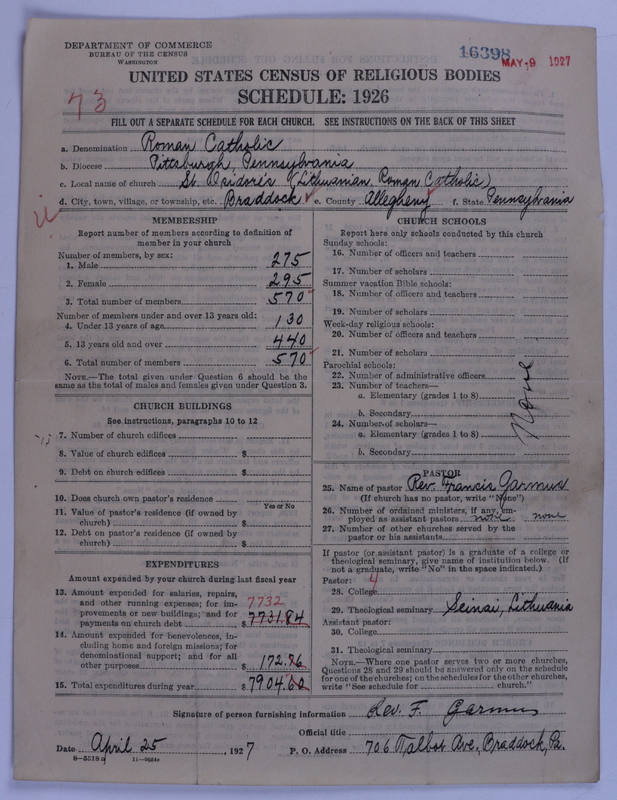 DEPARTMENT OF COMMERCE
BUREAU OF THE CENSUS
WASHINGTON
16398
MAY -9 1927
UNITED STATES CENSUS OF RELIGIOUS BODIES
73
SCHEDULE: 1926
FILL OUT A SEPARATE SCHEDULE FOR EACH CHURCH. SEE INSTRUCTIONS ON THE BACK OF THIS SHEET
a. Denomination Roman Catholic
b. Diocese Pittsburgh, Pennsylvania
c. Local name of church St. Isidore's (Lithuanian Roman Catholic)
d. City, town, village, or township, etc. Braddock e. County Allegheny f. State Pennsylvania
MEMBERSHIP
Report number of members according to definition of
member in your church
Number of members, by sex:
1. Male 275
2. Female 295
3. Total number of members 570
Number of members under and over 13 years old:
4. Under 13 years of age 130
5. 13 years old and over 440
6. Total number of members 570
NOTE.—The total given under Question 6 should be the
same as the total of males and females given under Question 3.
CHURCH BUILDINGS
See instructions, paragraphs 10 to 12
7. Number of church edifices
8. Value of church edifices $
9. Debt on church edifices $
10. Does church own pastor's residence
Yes or No
11. Value of pastor's residence (if owned by
church) $
12. Debt on pastor's residence (if owned by
church) $
EXPENDITURES
Amount expended by your church during last fiscal year
13. Amount expended for salaries, repairs,
and other running expenses; for im- 7732
provements or new building; and for
payments on church debt $ 7731.84
14. Amount expended for benevolences, in-
cluding home and foreign missions; for
denominational support; and for all
other purposes $ 172.76
15. Total expenditures during year $ 7904.60
CHURCH SCHOOLS
Report here only schools conducted by this church
Sunday schools:
16. Number of officers and teachers
17. Number of scholars
Summer vacation Bible schools:
18. Number of officers and teachers
19. Number of scholars
Week-day religious schools:
20. Number of officers and teachers
21. Number of scholars
Parochial schools:
22. Number of administrative officers
23. Number of teachers—
a. Elementary (grades 1 to 8)
b. Secondary
24. Number of scholars—
a. Elementary (grades 1 to 8)
b. Secondary
None
PASTOR
25. Name of pastor Rev. Francis Garmus
(If church has no pastor, write "None")
26. Number of ordained ministers, if any, em-
ployed as assistant pastors none none
27. Number of other churches served by the
pastor or his assistants
If pastor (or assistant pastor) is a graduate of a college or
theological seminary, give name of institution below. (If
not a graduate, write "No" in the space indicated.)
Pastor: 4
28. College
29. Theological seminary Seinai, Lithuania
Assistant pastor:
30. College
31. Theological seminary
NOTE.—Where one pastor serves two or more churches,
Questions 28 and 29 should be answered only on the schedule
for one of the churches; on the schedules for the other churches,
write "See schedule for church."
Signature of person furnishing information Rev. F. Garmus
Official title
Date April 25, 1927 P. O. Address 706 Talbot Ave., Braddock, Pa.
8—5518 a 11—9634a